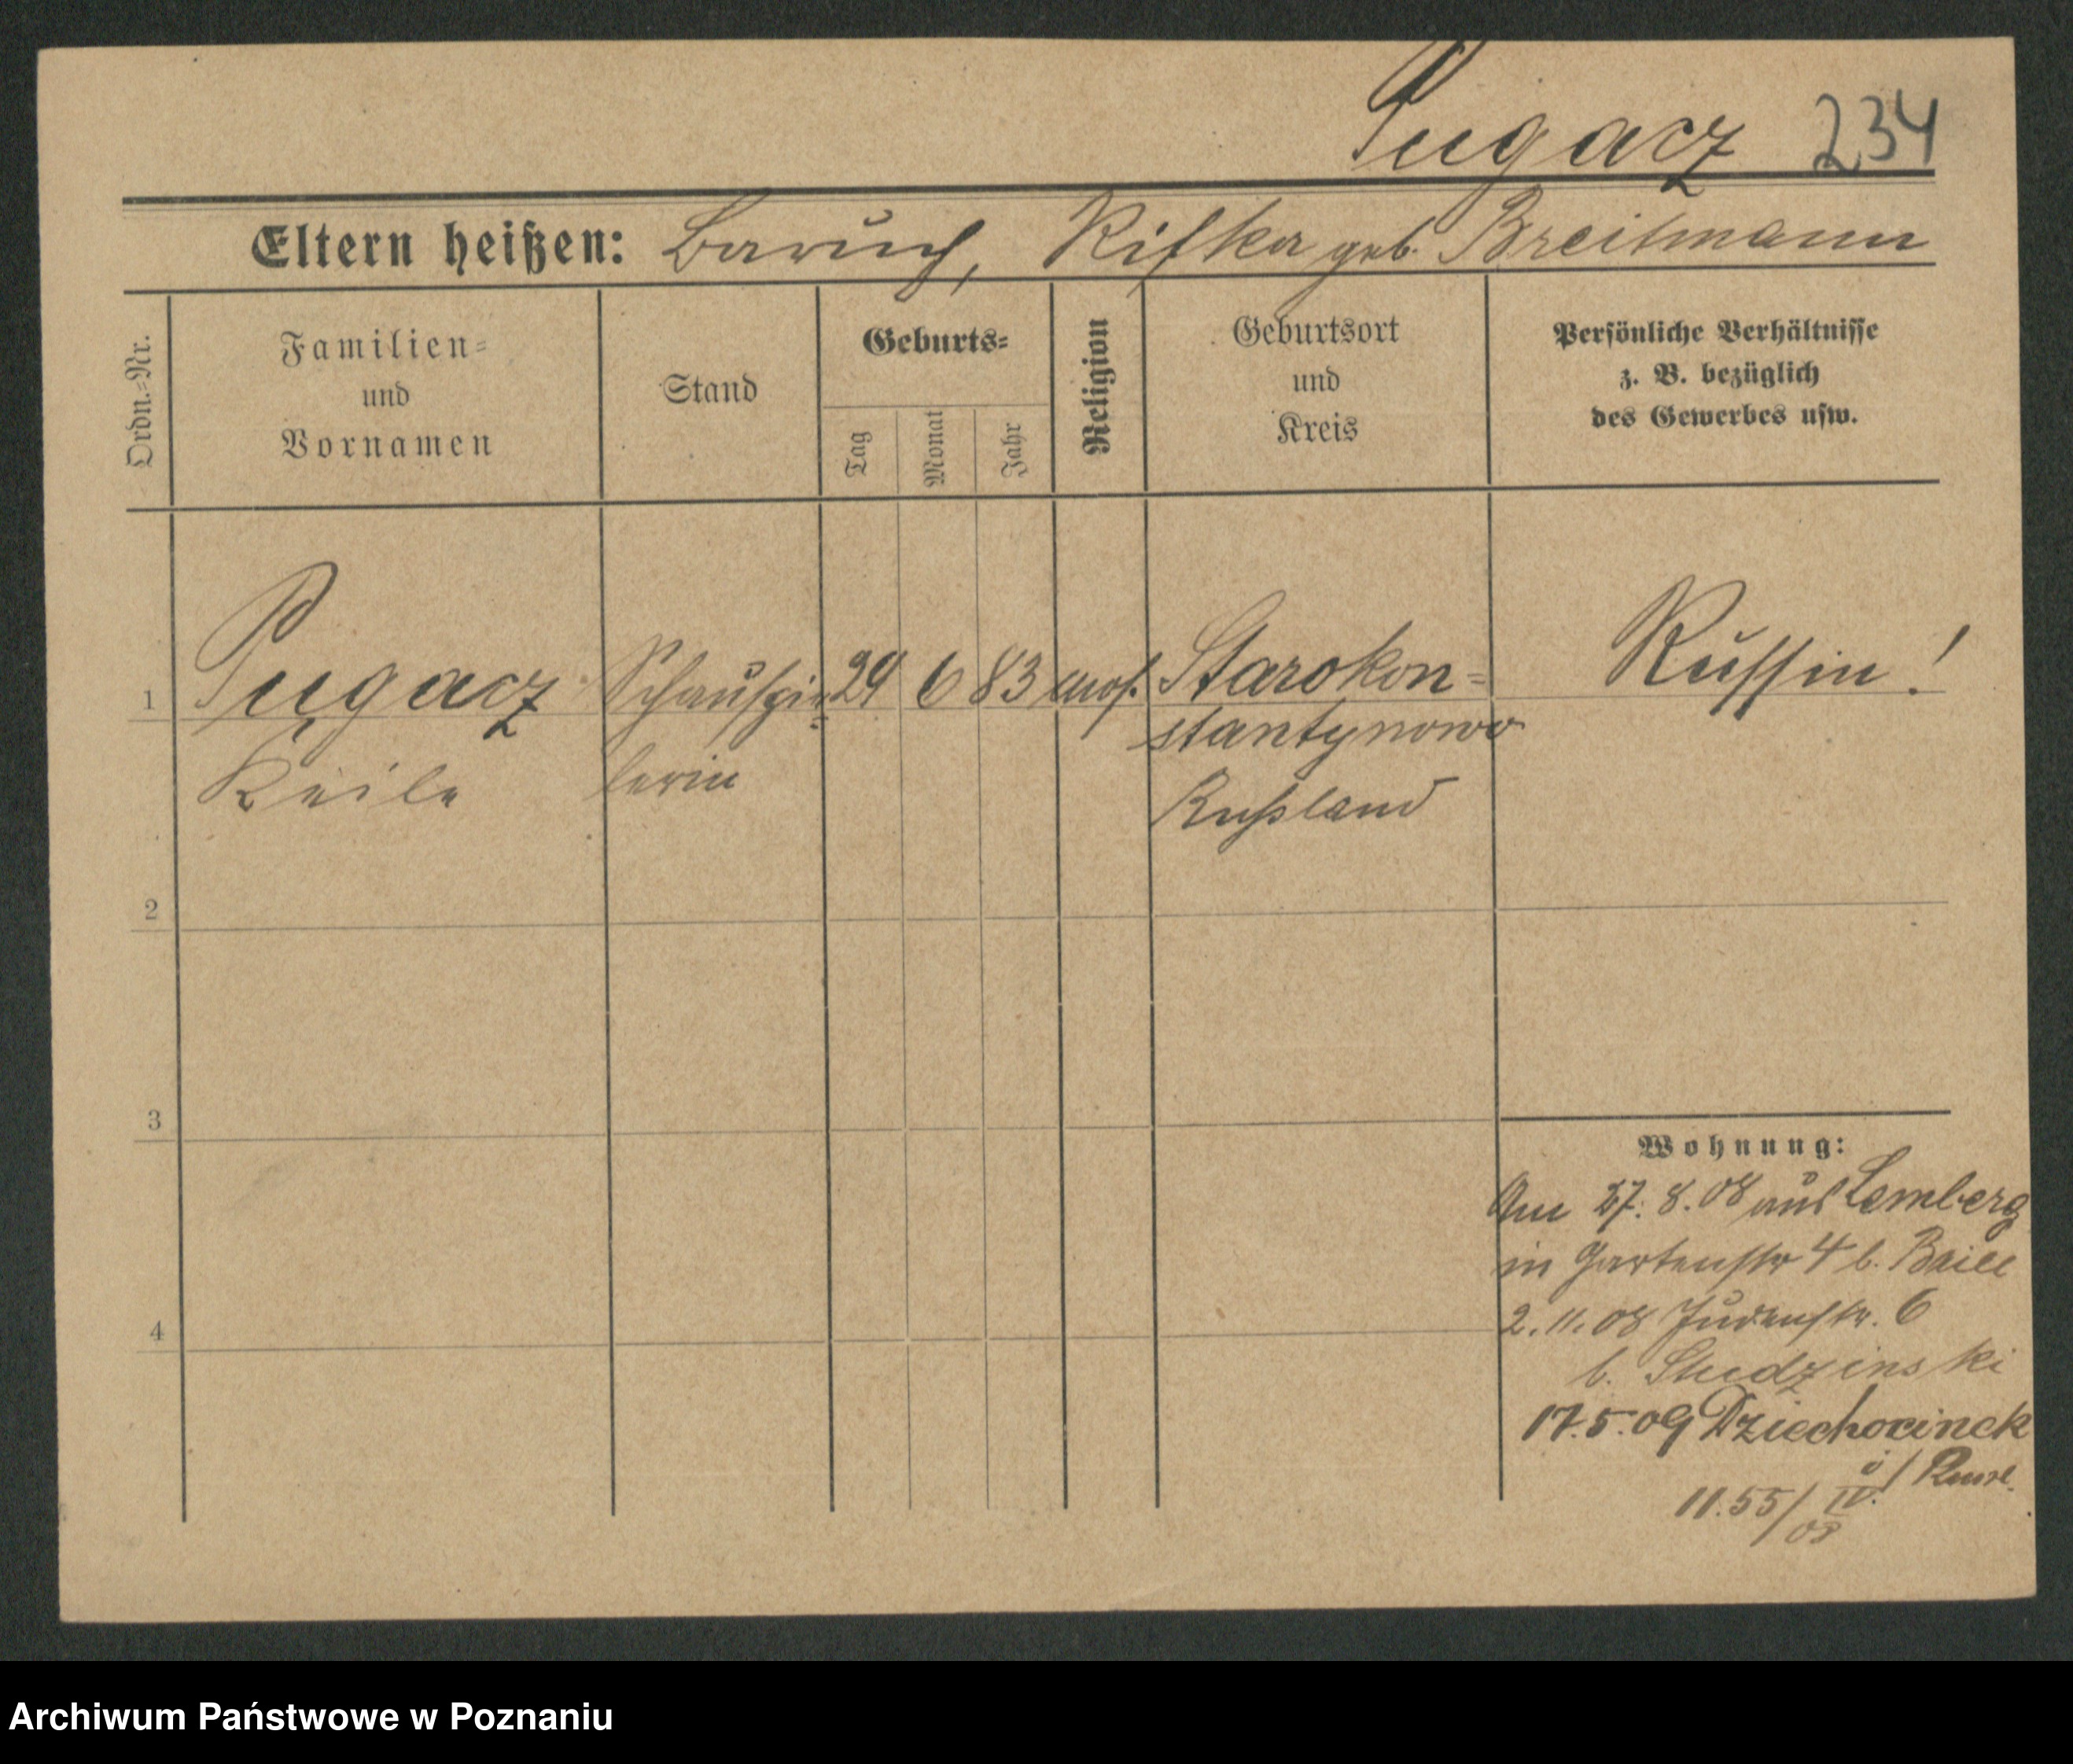 Pugacz 234
Eltern heißen: Baruch, Rifka geb. Breitmann
Ordn.=Nr.
Familien=
und
Vornamen
Stand
Geburts=
Tag
Monat
Jahr
Religion
Geburtsort
und
Kreis
Persönliche Verhältnisse
z. B. bezüglich
des Gewerbes usw.
1 Pugacz Schauspie= 29 6 83 mos. Starokon= Russin!
Keile lerin stantynowo
Rußland
2
3
4
Wohnung:
Am 27. 8. 08 aus Lemberg
in Gartenstr 4 b.
2. 11. 08 Judenstr. 6
b. Studzinski
17. 5. 09 Dziechocinek
11.55/IV. 08
Archiwum Państwowe w Poznaniu